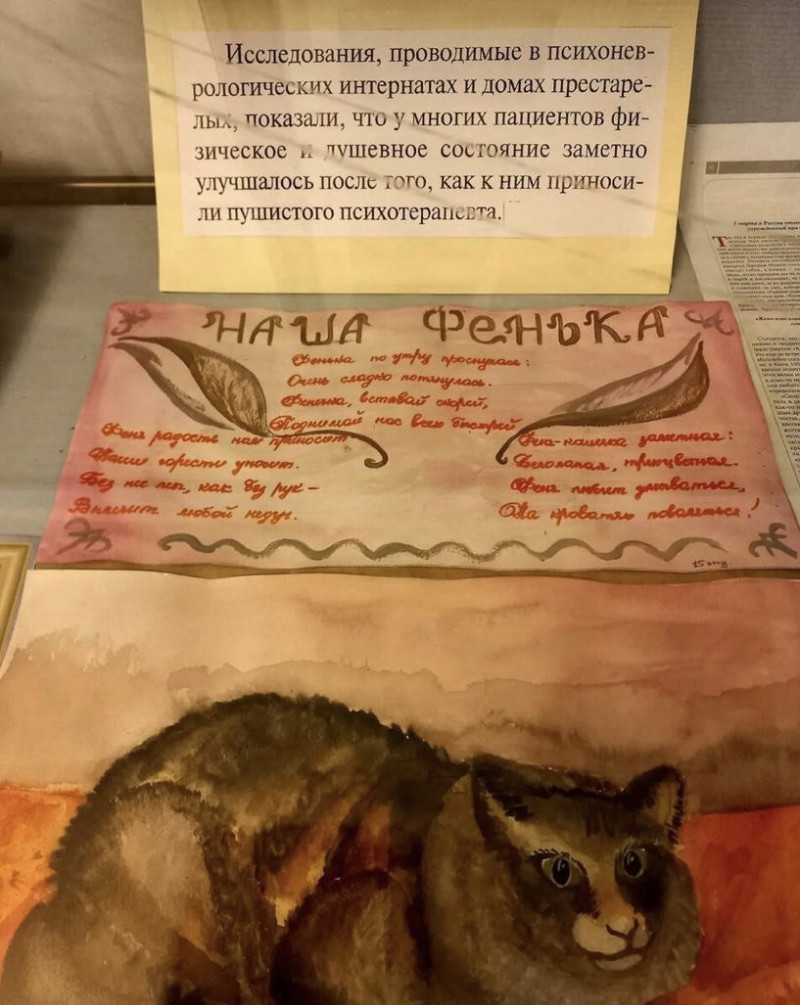 Исследования, проводимые в психонев-
рологических интернатах и домах престаре-
лых, показали, что у многих пациентов фи-
зическое и душевное состояние заметно
улучшалось после того, как к ним приноси-
ли пушистого психотерапевта.
НАША ФЕНЬКА
Фенька по утру проснулась:
Очень сладко потянулась.
Фенька, вставай скорей,
Поднимай нас всех быстрей
Феня радость нам приносит
Наши горести уносит.
Без нее мы, как без рук –
Вылечит любой недуг.
Феня-кошечка заметная:
Белолапая, трехцветная.
Феня любит умываться,
На кроватях поваляться!
15 отд